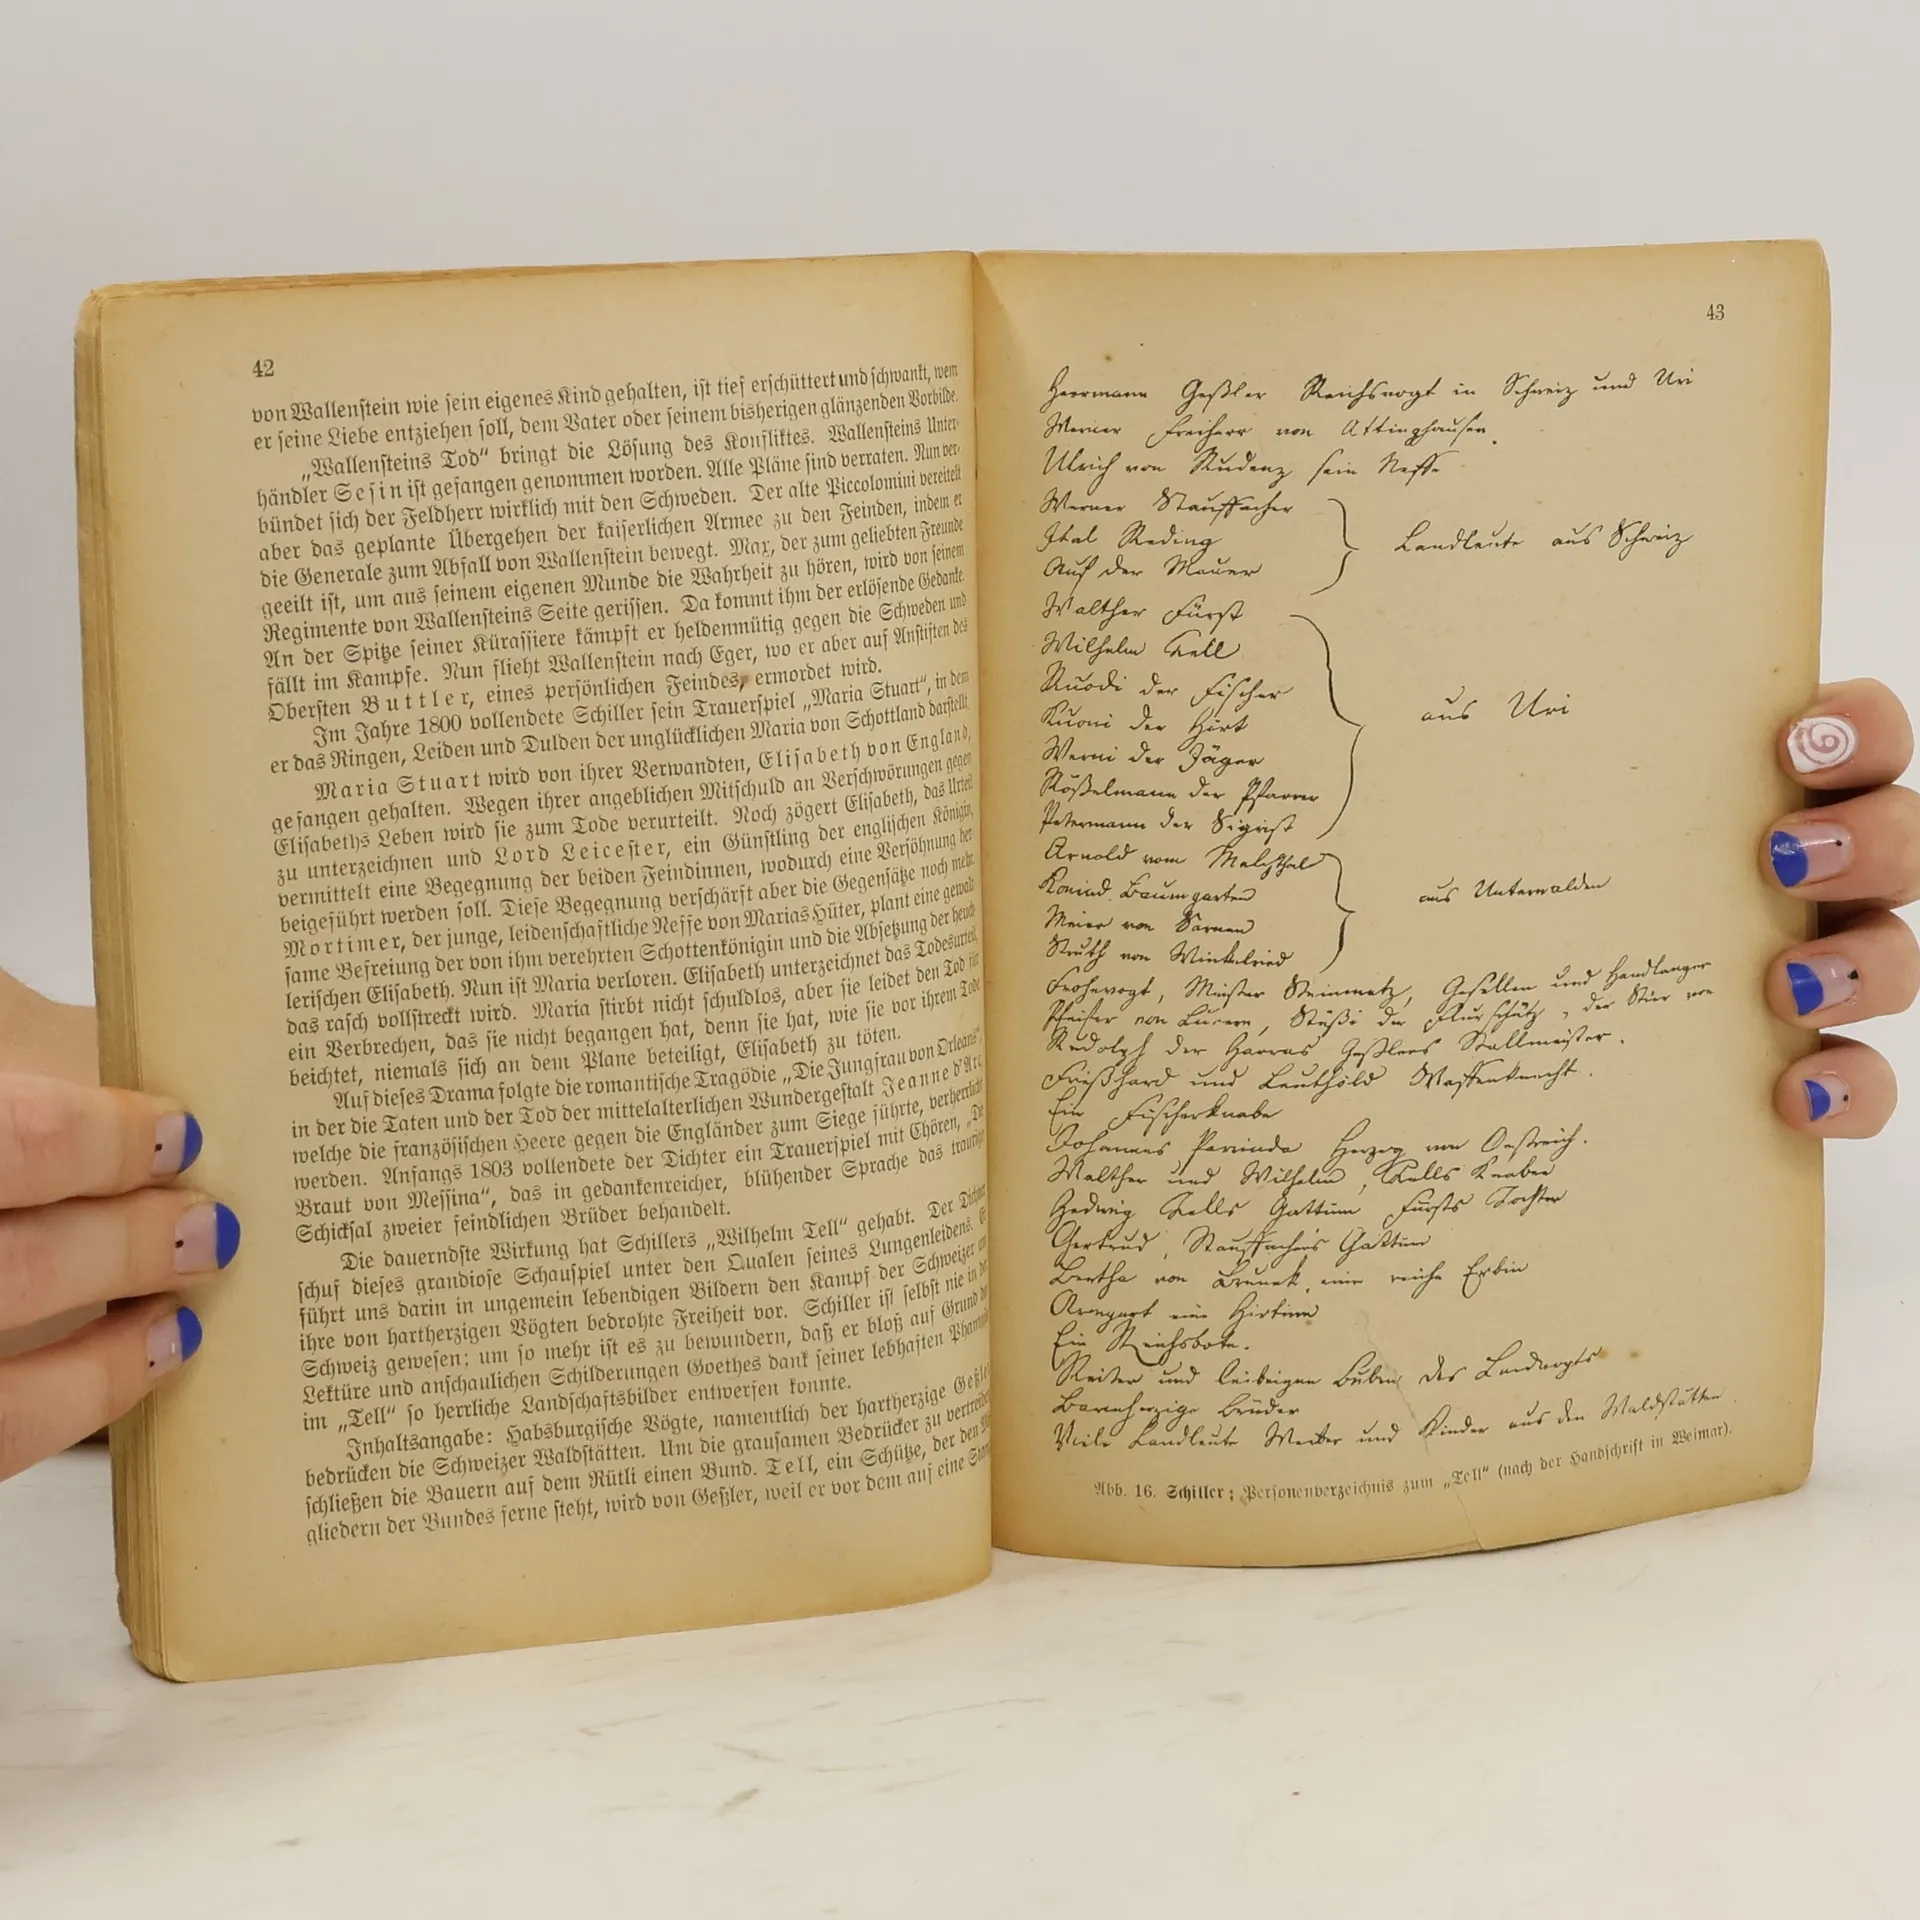 42
von Wallenstein wie sein eigenes Kind gehalten, ist tief erschüttert und schwankt, wem
er seine Liebe entziehen soll, dem Vater oder seinem bisherigen glänzenden Vorbilde.
„Wallensteins Tod“ bringt die Lösung des Konfliktes. Wallensteins Unter-
händler Sesin ist gefangen genommen worden. Alle Pläne sind verraten. Nun ver-
bündet sich der Feldherr wirklich mit den Schweden. Der alte Piccolomini vereitelt
aber das geplante Übergehen der kaiserlichen Armee zu den Feinden, indem er
die Generale zum Abfall von Wallenstein bewegt. Max, der zum geliebten Freunde
geeilt ist, um aus seinem eigenen Munde die Wahrheit zu hören, wird von seinem
Regimente von Wallensteins Seite gerissen. Da kommt ihm der erlösende Gedanke.
An der Spitze seiner Kürassiere kämpft er heldenmütig gegen die Schweden und
fällt im Kampfe. Nun flieht Wallenstein nach Eger, wo er aber auf Anstiften des
Obersten Buttler, eines persönlichen Feindes, ermordet wird.
Im Jahre 1800 vollendete Schiller sein Trauerspiel „Maria Stuart“, in dem
er das Ringen, Leiden und Dulden der unglücklichen Maria von Schottland darstellt.
Maria Stuart wird von ihrer Verwandten, Elisabeth von England,
gefangen gehalten. Wegen ihrer angeblichen Mitschuld an Verschwörungen gegen
Elisabeths Leben wird sie zum Tode verurteilt. Noch zögert Elisabeth, das Urteil
zu unterzeichnen und Lord Leicester, ein Günstling der englischen Königin,
vermittelt eine Begegnung der beiden Feindinnen, wodurch eine Versöhnung her
beigeführt werden soll. Diese Begegnung verschärft aber die Gegensätze noch mehr.
Mortimer, der junge, leidenschaftliche Neffe von Marias Hüter, plant eine gewalt
same Befreiung der von ihm verehrten Schottenkönigin und die Absetzung der heuch
lerischen Elisabeth. Nun ist Maria verloren. Elisabeth unterzeichnet das Todesurteil,
das rasch vollstreckt wird. Maria stirbt nicht schuldlos, aber sie leidet den Tod für
ein Verbrechen, das sie nicht begangen hat, denn sie hat, wie sie vor ihrem Tode
beichtet, niemals sich an dem Plane beteiligt, Elisabeth zu töten.
Auf dieses Drama folgte die romantische Tragödie „Die Jungfrau von Orleans“,
in der die Taten und der Tod der mittelalterlichen Wundergestalt Jeanne d'Arc,
welche die französischen Heere gegen die Engländer zum Siege führte, verherrlicht
werden. Anfangs 1803 vollendete der Dichter ein Trauerspiel mit Chören, „Die
Braut von Messina“, das in gedankenreicher, blühender Sprache das traurige
Schicksal zweier feindlichen Brüder behandelt.
Die dauerndste Wirkung hat Schillers „Wilhelm Tell“ gehabt. Der Dichter
schuf dieses grandiose Schauspiel unter den Qualen seines Lungenleidens. Er
führt uns darin in ungemein lebendigen Bildern den Kampf der Schweizer um
ihre von hartherzigen Vögten bedrohte Freiheit vor. Schiller ist selbst nie in der
Schweiz gewesen; um so mehr ist es zu bewundern, daß er bloß auf Grund der
Lektüre und anschaulichen Schilderungen Goethes dank seiner lebhaften Phantasie
im „Tell“ so herrliche Landschaftsbilder entwerfen konnte.
Inhaltsangabe: Habsburgische Vögte, namentlich der hartherzige Geßler
bedrücken die Schweizer Waldstätten. Um die grausamen Bedrücker zu vertreiben
schließen die Bauern auf dem Rütli einen Bund. Tell, ein Schütze, der den
gliedern der Bundes ferne steht, wird von Geßler, weil er vor dem auf eine
43
Herrmann Geßler Reichsvogt in Schweiz und Uri
Werner Freiherr von Attinghausen.
Ulrich von Rudenz sein Neffe
Werner Stauffacher
Ital Reding
Auf der Mauer
Landleute aus Schweiz
Walther Fürst
Wilhelm Tell
Ruodi der Fischer
Kuoni der Hirt
Werni der Jäger
Rößelmann der Pfarrer
Petermann der Sigrist
aus Uri
Arnold vom Melchthal
Konrad Baumgarten
Meier von Sarnen
Struth von Winkelried
aus Unterwalden
Frohnvogt, Meister Steinmetz, Gesellen und Handlanger
Pfeifer von Lucern, Stüßi der Flurschütz, der Stier von
Rudolph der Harras Geßlers Stallmeister.
Frießhard und Leuthold Waffenknecht.
Ein Fischerknabe
Johannes Parricida Herzog von Oestreich.
Walther und Wilhelm, Tells Knaben
Hedwig Tells Gattinn Fürsts Tochter
Gertrud, Stauffachers Gattinn
Bertha von Bruneck, eine reiche Erbin
Armgart eine Hirtinn
Ein Reichsbote.
Reiter und leibeigne Buben des Landvogts
Barmherzige Brüder
Viele Landleute Weiber und Kinder aus den Waldstätten.
Abb. 16. Schiller; Personenverzeichnis zum „Tell“ (nach der Handschrift in Weimar).